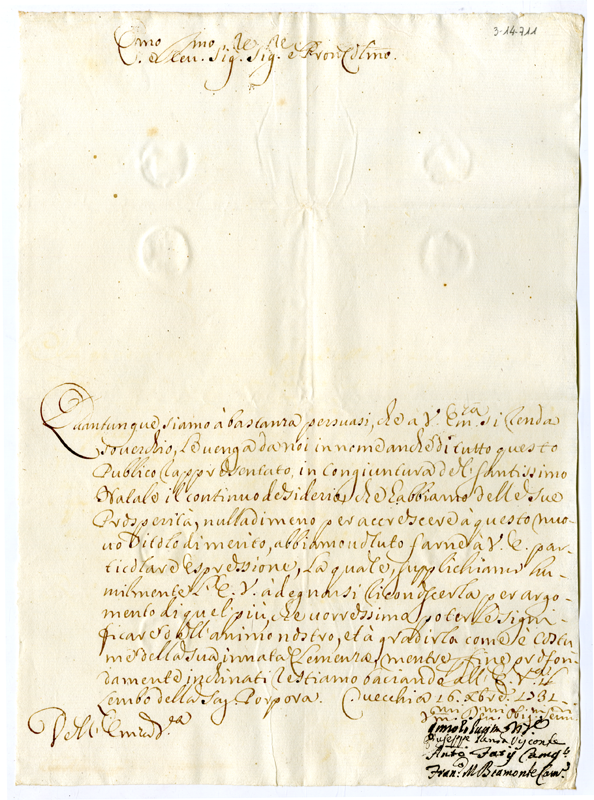 3-14-711
Emo
e Rev. Sig. Sig. e Pron Colmo.
Quantunque siamo à bastanza persuasi, che a V. Em.za si renda
soverchio, le venga da noi in nome anche di tutto questo
Publico rappresentato, in congiuntura del Santissimo
Natale il continuo desiderio, che habbiamo delle di sue
Prosperità, nulladimeno per accrescere à questo nuo-
vo titolo di merito, abbiam voluto farne à V. E. par-
ticolare espressione, la quale, supplichiamo hu-
milmente l'E. V. à degnarsi riconoscerla per argo-
mento di quel più, che vorressimo poterle signi-
ficare dell'animo nostro, et à gradirla come è costu-
me della sua innata Clemenza, mentre per fine profon-
damente inclinati restiamo baciando all' E. V. il
Lembo della Sag. Porpora. 16. Xbre 1731
Dell' Em.za V.ra
Giuseppe Visconte
Ant.o
Fran.o M.